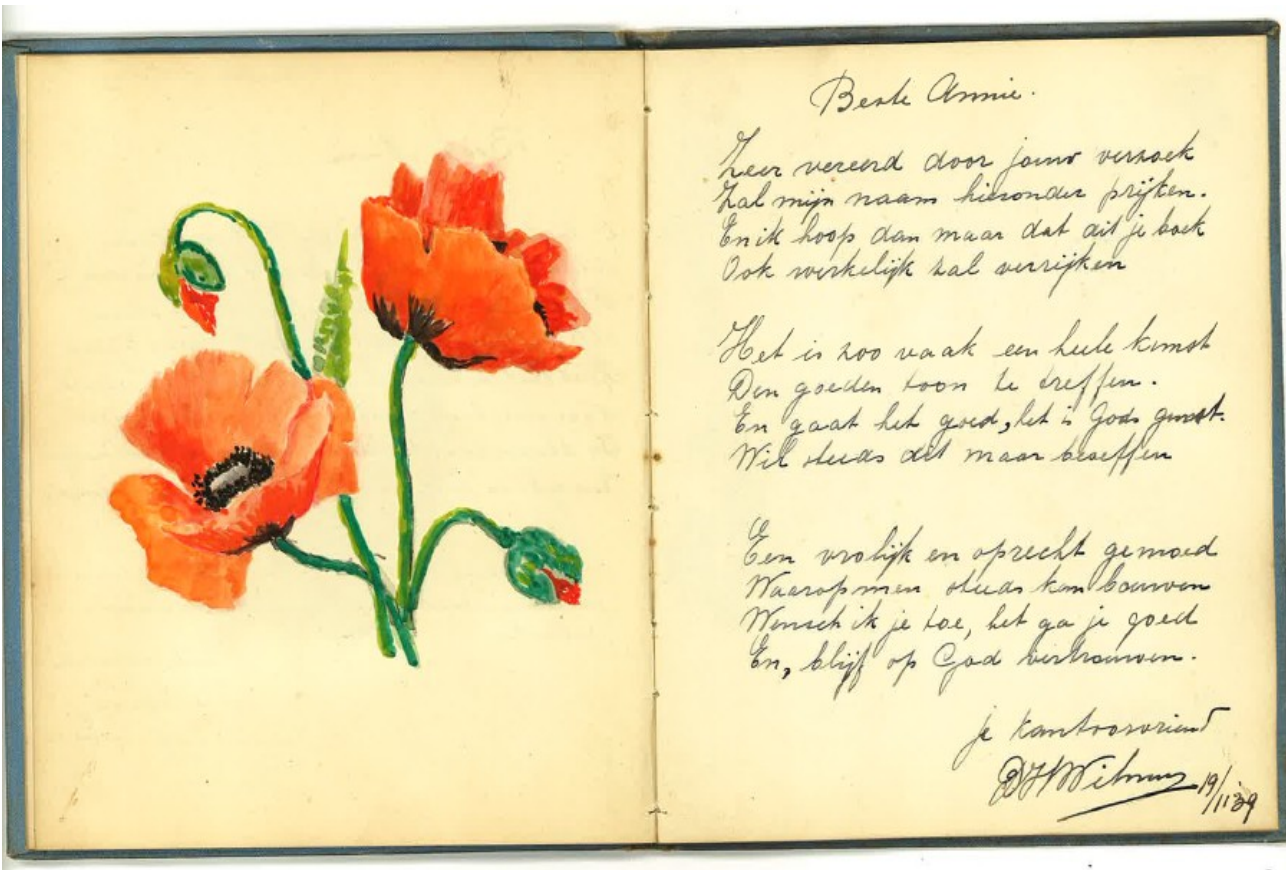 Beste Annie.
Zeer vereerd door jouw verzoek
Zal mijn naam hieronder prijken.
En ik hoop dan maar dat dit je boek
Ook werkelijk zal verrijken
Het is zoo vaak een heele kunst
Den goeden toon te treffen.
En gaat het goed, het is Gods gunst.
Wil steeds dit maar beseffen
Een vrolijk en oprecht gemoed
Waarop men steeds kan bouwen
Wensch ik je toe, het ga je goed
En, blijf op God vertrouwen.
je kantoorvriend
19/11 '39